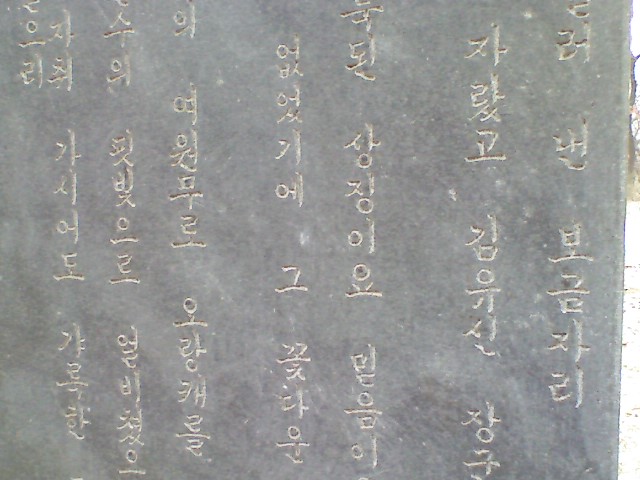 러 낸 보금자리
자랐고 김유신
된 상징이요 믿음이
없었기에 그 꽃다운
의 여원무로 오랑캐를
수의 핏빛으로 얼비쳤으
자취 가시어도 갸륵한
으리